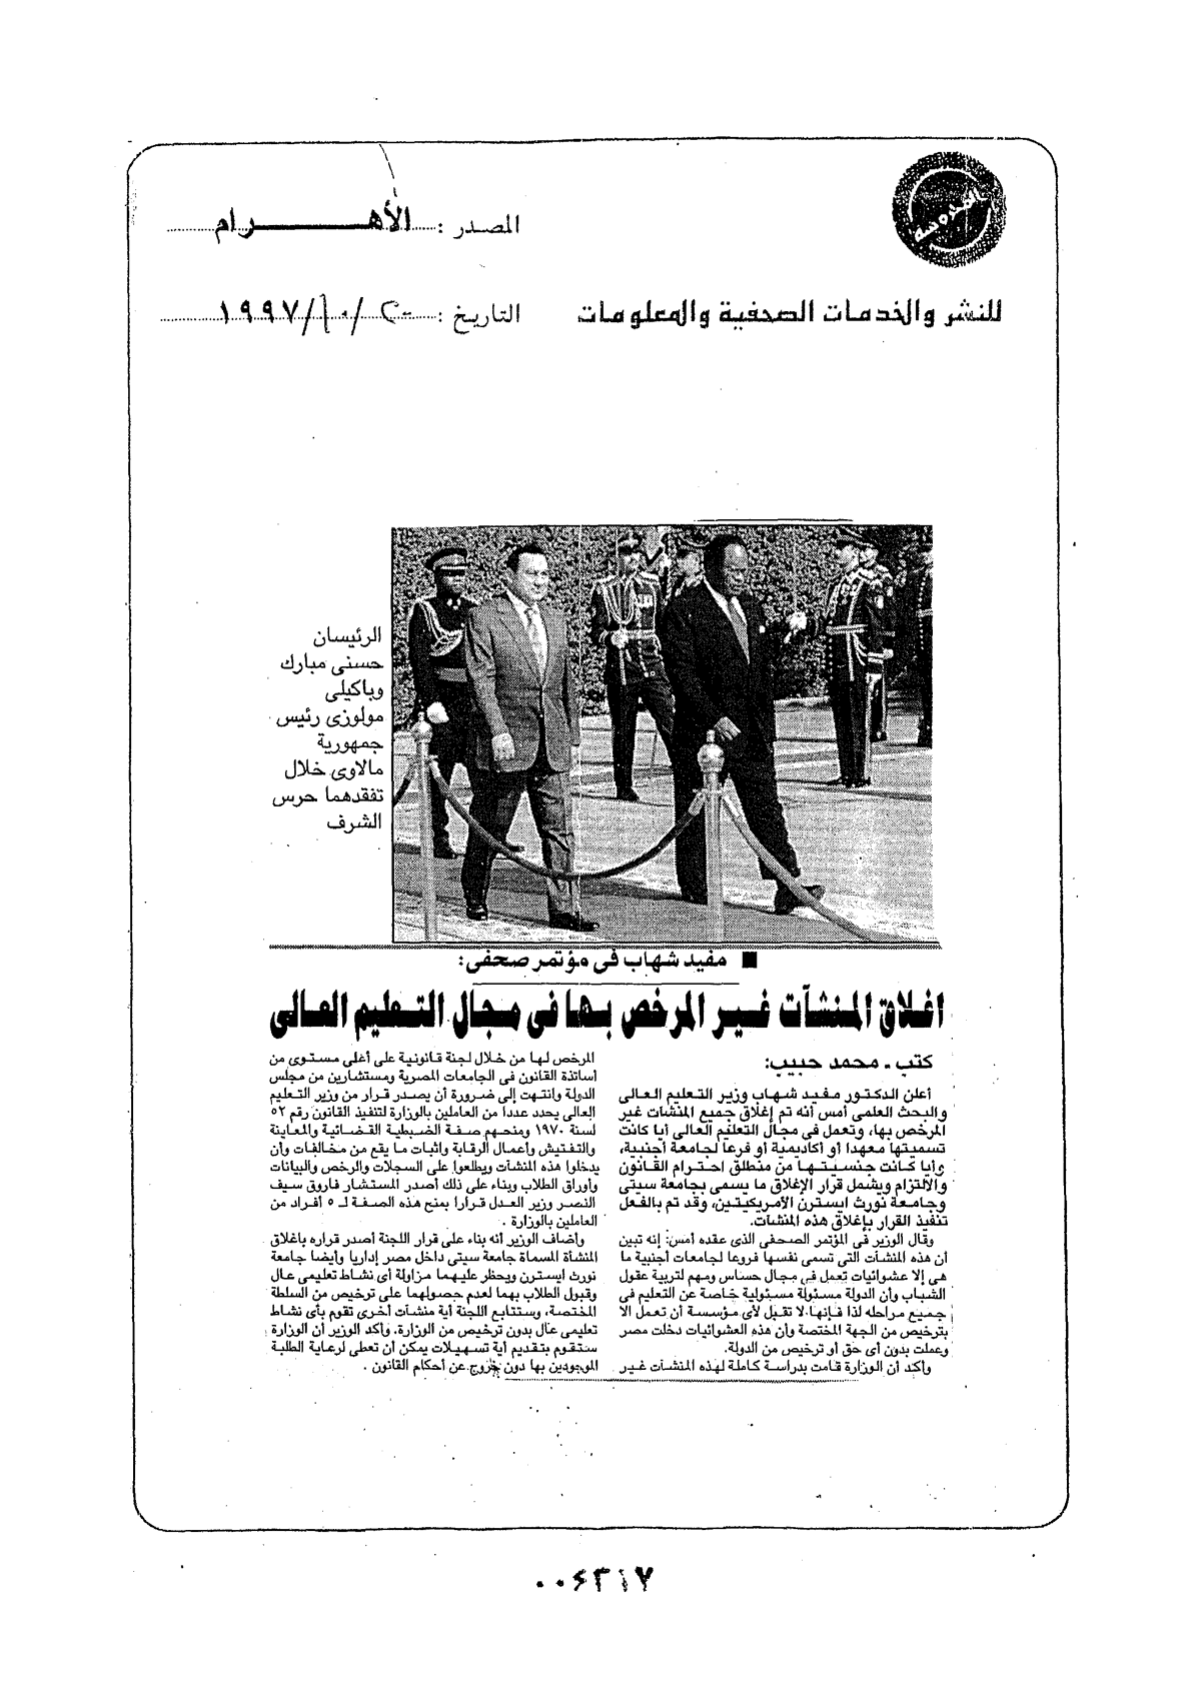 المصدر : الأهرام
للنشر والخدمات الصحفية والمعلومات
التاريخ : ٢٠/١٠/١٩٩٧
الرئيسان
حسنى مبارك
وباكيلى
مولوزى رئيس
جمهورية
مالاوى خلال
تفقدهما حرس
الشرف
■ مفيد شهاب فى مؤتمر صحفى:
اغلاق المنشآت غير المرخص بها فى مجال التعليم العالى
كتب ـ محمد حبيب:
أعلن الدكتور مفيد شهاب وزير التعليم العالى
والبحث العلمى أمس أنه تم إغلاق جميع المنشات غير
المرخص بها، وتعمل فى مجال التعليم العالى أيا كانت
تسميتها معهدا أو أكاديمية أو فرعا لجامعة أجنبية،
وأيا كانت جنسيتها من منطلق احترام القانون
والالتزام ويشمل قرار الإغلاق ما يسمى بجامعة سيتى
وجامعة نورث ايسترن الأمريكيتين، وقد تم بالفعل
تنفيذ القرار بإغلاق هذه المنشآت.
وقال الوزير فى المؤتمر الصحفى الذى عقده أمس: إنه تبين
أن هذه المنشآت التى تسمى نفسها فروعا لجامعات أجنبية ما
هى إلا عشوائيات تعمل فى مجال حساس ومهم لتربية عقول
الشباب وأن الدولة مسئولة مسئولية خاصة عن التعليم فى
جميع مراحله لذا فإنها لا تقبل لأى مؤسسة أن تعمل الا
بترخيص من الجهة المختصة وأن هذه العشوائيات دخلت مصر
وعملت بدون أى حق أو ترخيص من الدولة.
وأكد أن الوزارة قامت بدراسة كاملة لهذه المنشآت غير
المرخص لها من خلال لجنة قانونية على أعلى مستوى من
أساتذة القانون فى الجامعات المصرية ومستشارين من مجلس
الدولة وانتهت إلى ضرورة أن يصدر قرار من وزير التعليم
العالى يحدد عددا من العاملين بالوزارة لتنفيذ القانون رقم ٥٢
لسنة ١٩٧٠ ومنحهم صفة الضبطية القضائية والمعاينة
والتفتيش وأعمال الرقابة واثبات ما يقع من مخالفات وأن
يدخلوا هذه المنشآت ويطلعوا على السجلات والرخص والبيانات
وأوراق الطلاب وبناء على ذلك أصدر المستشار فاروق سيف
النصر وزير العدل قرارا بمنح هذه الصفة لـ ٥ أفراد من
العاملين بالوزارة .
وأضاف الوزير أنه بناء على قرار اللجنة أصدر قراره بإغلاق
المنشأة المسماة جامعة سيتى داخل مصر إداريا وأيضا جامعة
نورث ايسترن ويحظر عليهما مزاولة أى نشاط تعليمى عال
وقبول الطلاب بهما لعدم حصولهما على ترخيص من السلطة
المختصة، وستتابع اللجنة أية منشآت أخرى تقوم بأى نشاط
تعليمى عال بدون ترخيص من الوزارة. وأكد الوزير أن الوزارة
ستقوم بتقديم أية تسهيلات يمكن أن تعطى لرعاية الطلبة
الموجودين بها دون خروج عن أحكام القانون .